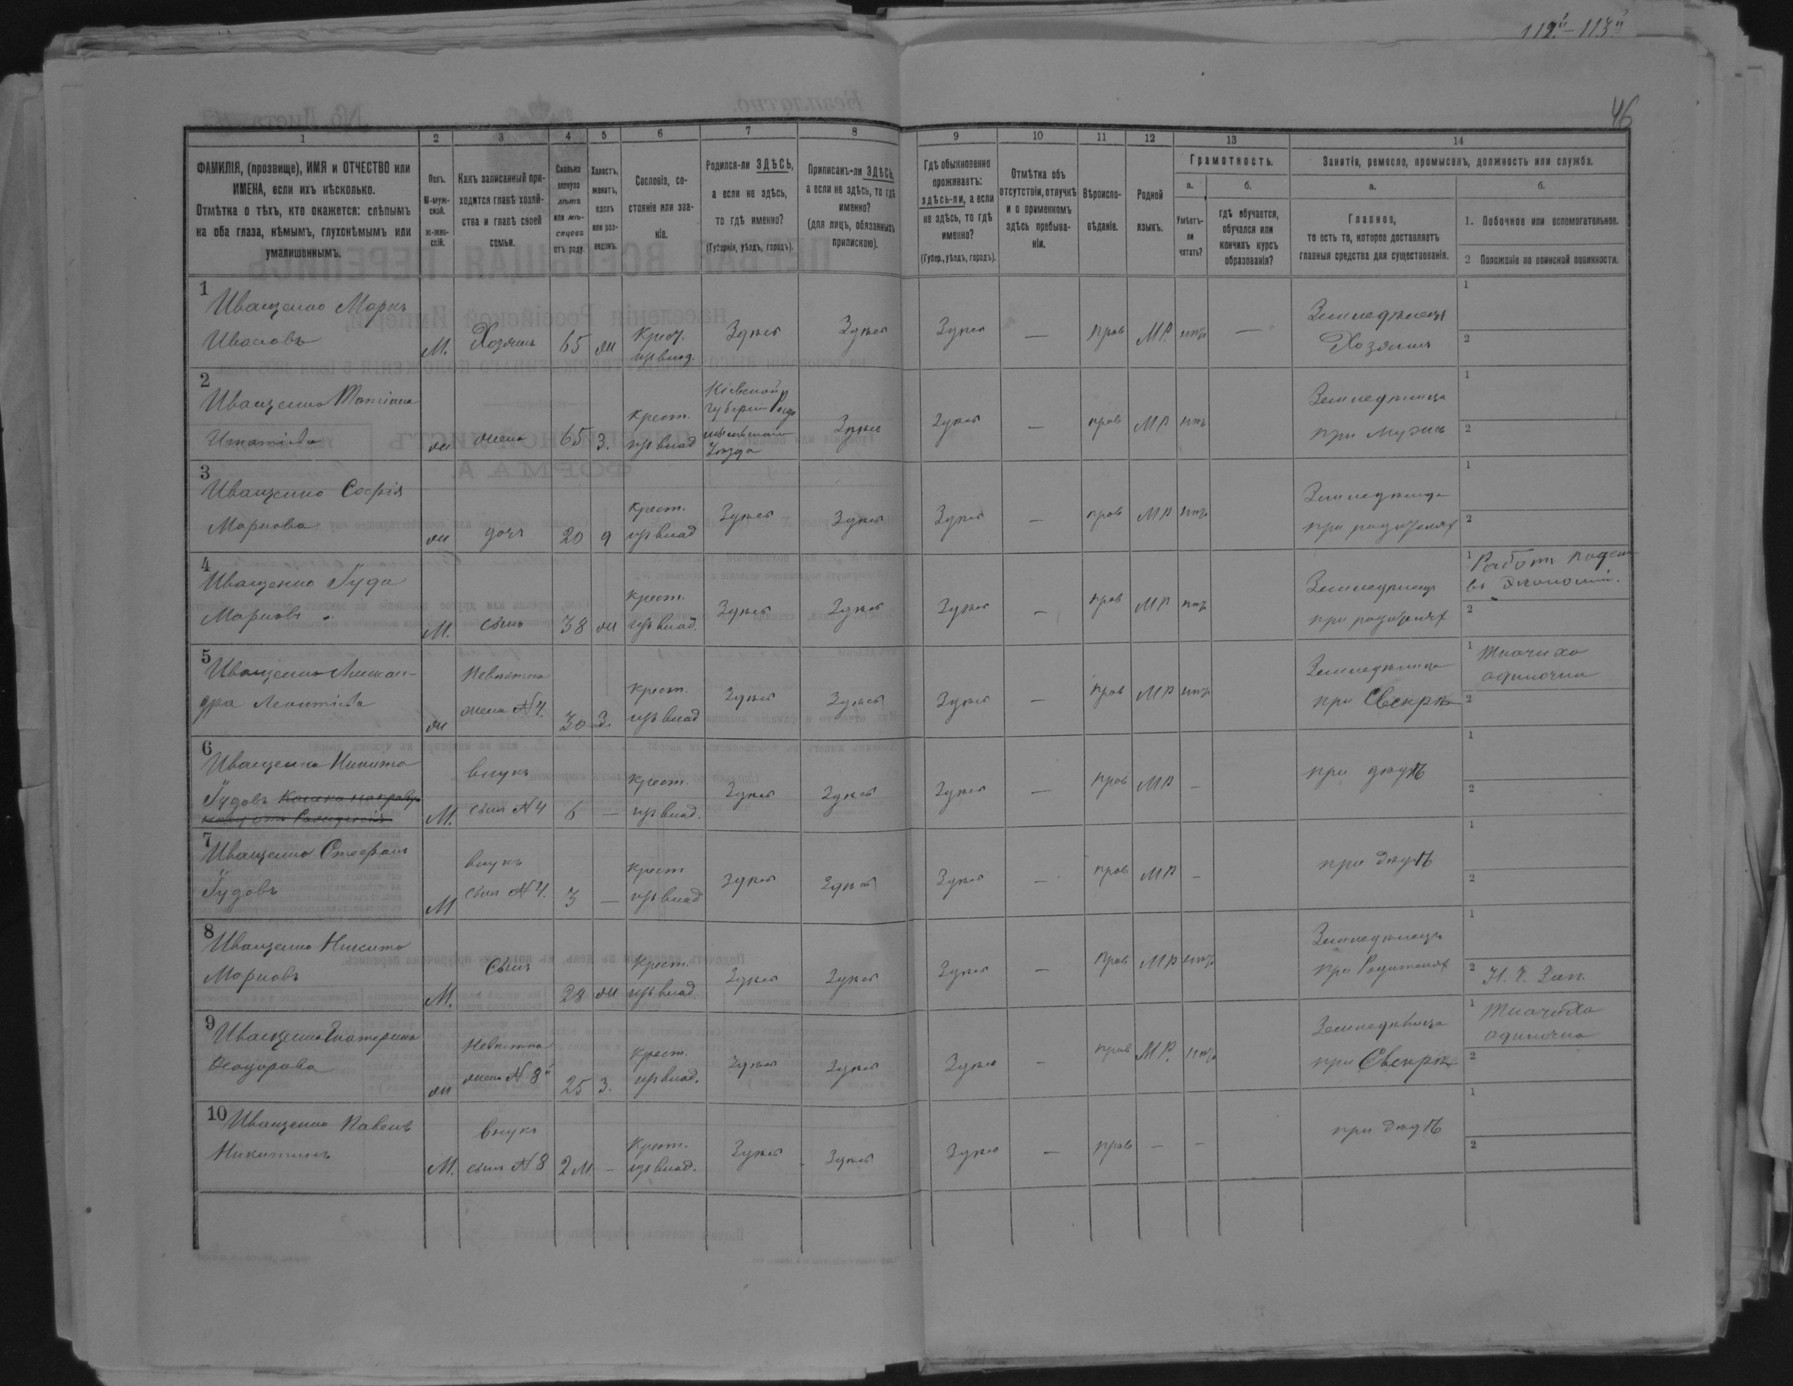 112" – 113"
46
1
2
3
4
5
6
7
8
9
10
11
12
13
14
ФАМИЛІЯ, (прозвище), ИМЯ и ОТЧЕСТВО или
ИМЕНА, если ихъ нѣсколько.
Отмѣтка о тѣхъ, кто окажется: слѣпымъ
на оба глаза, нѣмымъ, глухонѣмымъ или
умалишеннымъ.
Полъ.
М-муж-
ской.
Ж-жен-
скій.
Какъ записанный при-
ходится главѣ хозяй-
ства и главѣ своей
семьи.
Сколько
минуло
лѣтъ
или мѣ-
сяцевъ
отъ роду.
Холостъ,
женатъ,
вдовъ
или раз-
веденъ.
Сословіе, со-
стояніе или зва-
ніе.
Родился-ли ЗДѢСЬ,
а если не здѣсь,
то гдѣ именно?
(Губернія, уѣздъ, городъ).
Приписанъ-ли ЗДѢСЬ,
а если не здѣсь, то гдѣ
именно?
(для лицъ, обязанныхъ
припискою).
Гдѣ обыкновенно
проживаетъ:
здѣсь-ли, а если
не здѣсь, то гдѣ
именно?
(Губер., уѣздъ, городъ).
Отмѣтка объ
отсутствіи, отлучкѣ
и о временномъ
здѣсь пребыва-
ніи.
Вѣроиспо-
вѣданіе.
Родной
языкъ.
Грамотность.
а.
Умѣетъ-
ли
читать?
б.
гдѣ обучается,
обучался или
кончилъ курсъ
образованія?
Занятіе, ремесло, промыселъ, должность или служба.
а.
Главное,
то есть то, которое доставляетъ
главныя средства для существованія.
б.
1. Побочное или вспомогательное.
2 Положеніе по воинской повинности.
1 Иващенко Маркъ
Ивановъ
М. Хозяинъ 65 ж Крест. изъ влад. Здѣсь Здѣсь Здѣсь — прав МР. нѣтъ —
Земледѣлецъ
Хозяинъ
1
2
2 Иващенко Татіана
Игнатіева
ж жена 65 з. крест. изъ влад
Кіевской
губерніи
уѣзда
Здѣсь Здѣсь — прав МР нѣтъ
Земледѣлица
при мужѣ
1
2
3 Иващенко Софія
Маркова
ж дочь 20 д крест. изъ влад Здѣсь Здѣсь Здѣсь — прав МР нѣтъ
Земледѣлица
при родителях
1
2
4 Иващенко Іуда
Марковъ
М. сынъ 38 ж крест. изъ влад. Здѣсь Здѣсь Здѣсь — прав МР нѣтъ
Земледѣлецъ
при родителях
1 Работн поден
въ экономіи.
2
5 Иващенко Алексан-
дра Леонтіева
ж Невѣстка
жена №4. 30 з. крест. изъ влад Здѣсь Здѣсь Здѣсь — прав МР нѣтъ
Земледѣлица
при Свекрѣ
1 Ткачиха
одиночка
2
6 Иващенко Никита
Іудовъ
М. внукъ
сынъ №4 6 — крест. изъ влад. Здѣсь Здѣсь Здѣсь — прав МР —
при дѣдѣ
1
2
7 Иващенко Стефанъ
Іудовъ
М внукъ
сынъ №4. 3 — крест изъ влад Здѣсь Здѣсь Здѣсь — прав МР —
при дѣдѣ
1
2
8 Иващенко Никита
Марковъ
М. Сынъ 28 ж Крест. изъ влад. Здѣсь Здѣсь Здѣсь — прав МР нѣтъ
Земледѣлецъ
при Родителях
1
2 Н. Ч. Зап.
9 Иващенко Екатерина
Ѳеодорова
ж Невѣстка
жена №8 25 з. крест. изъ влад. Здѣсь Здѣсь Здѣсь — прав МР. нѣтъ
Земледѣлица
при Свекрѣ
1 Ткачиха
одиночка
2
10 Иващенко Павелъ
Никитинъ
М. внукъ
сынъ №8 2 м — Крест. изъ влад. Здѣсь Здѣсь Здѣсь — прав — —
при дѣдѣ
1
2